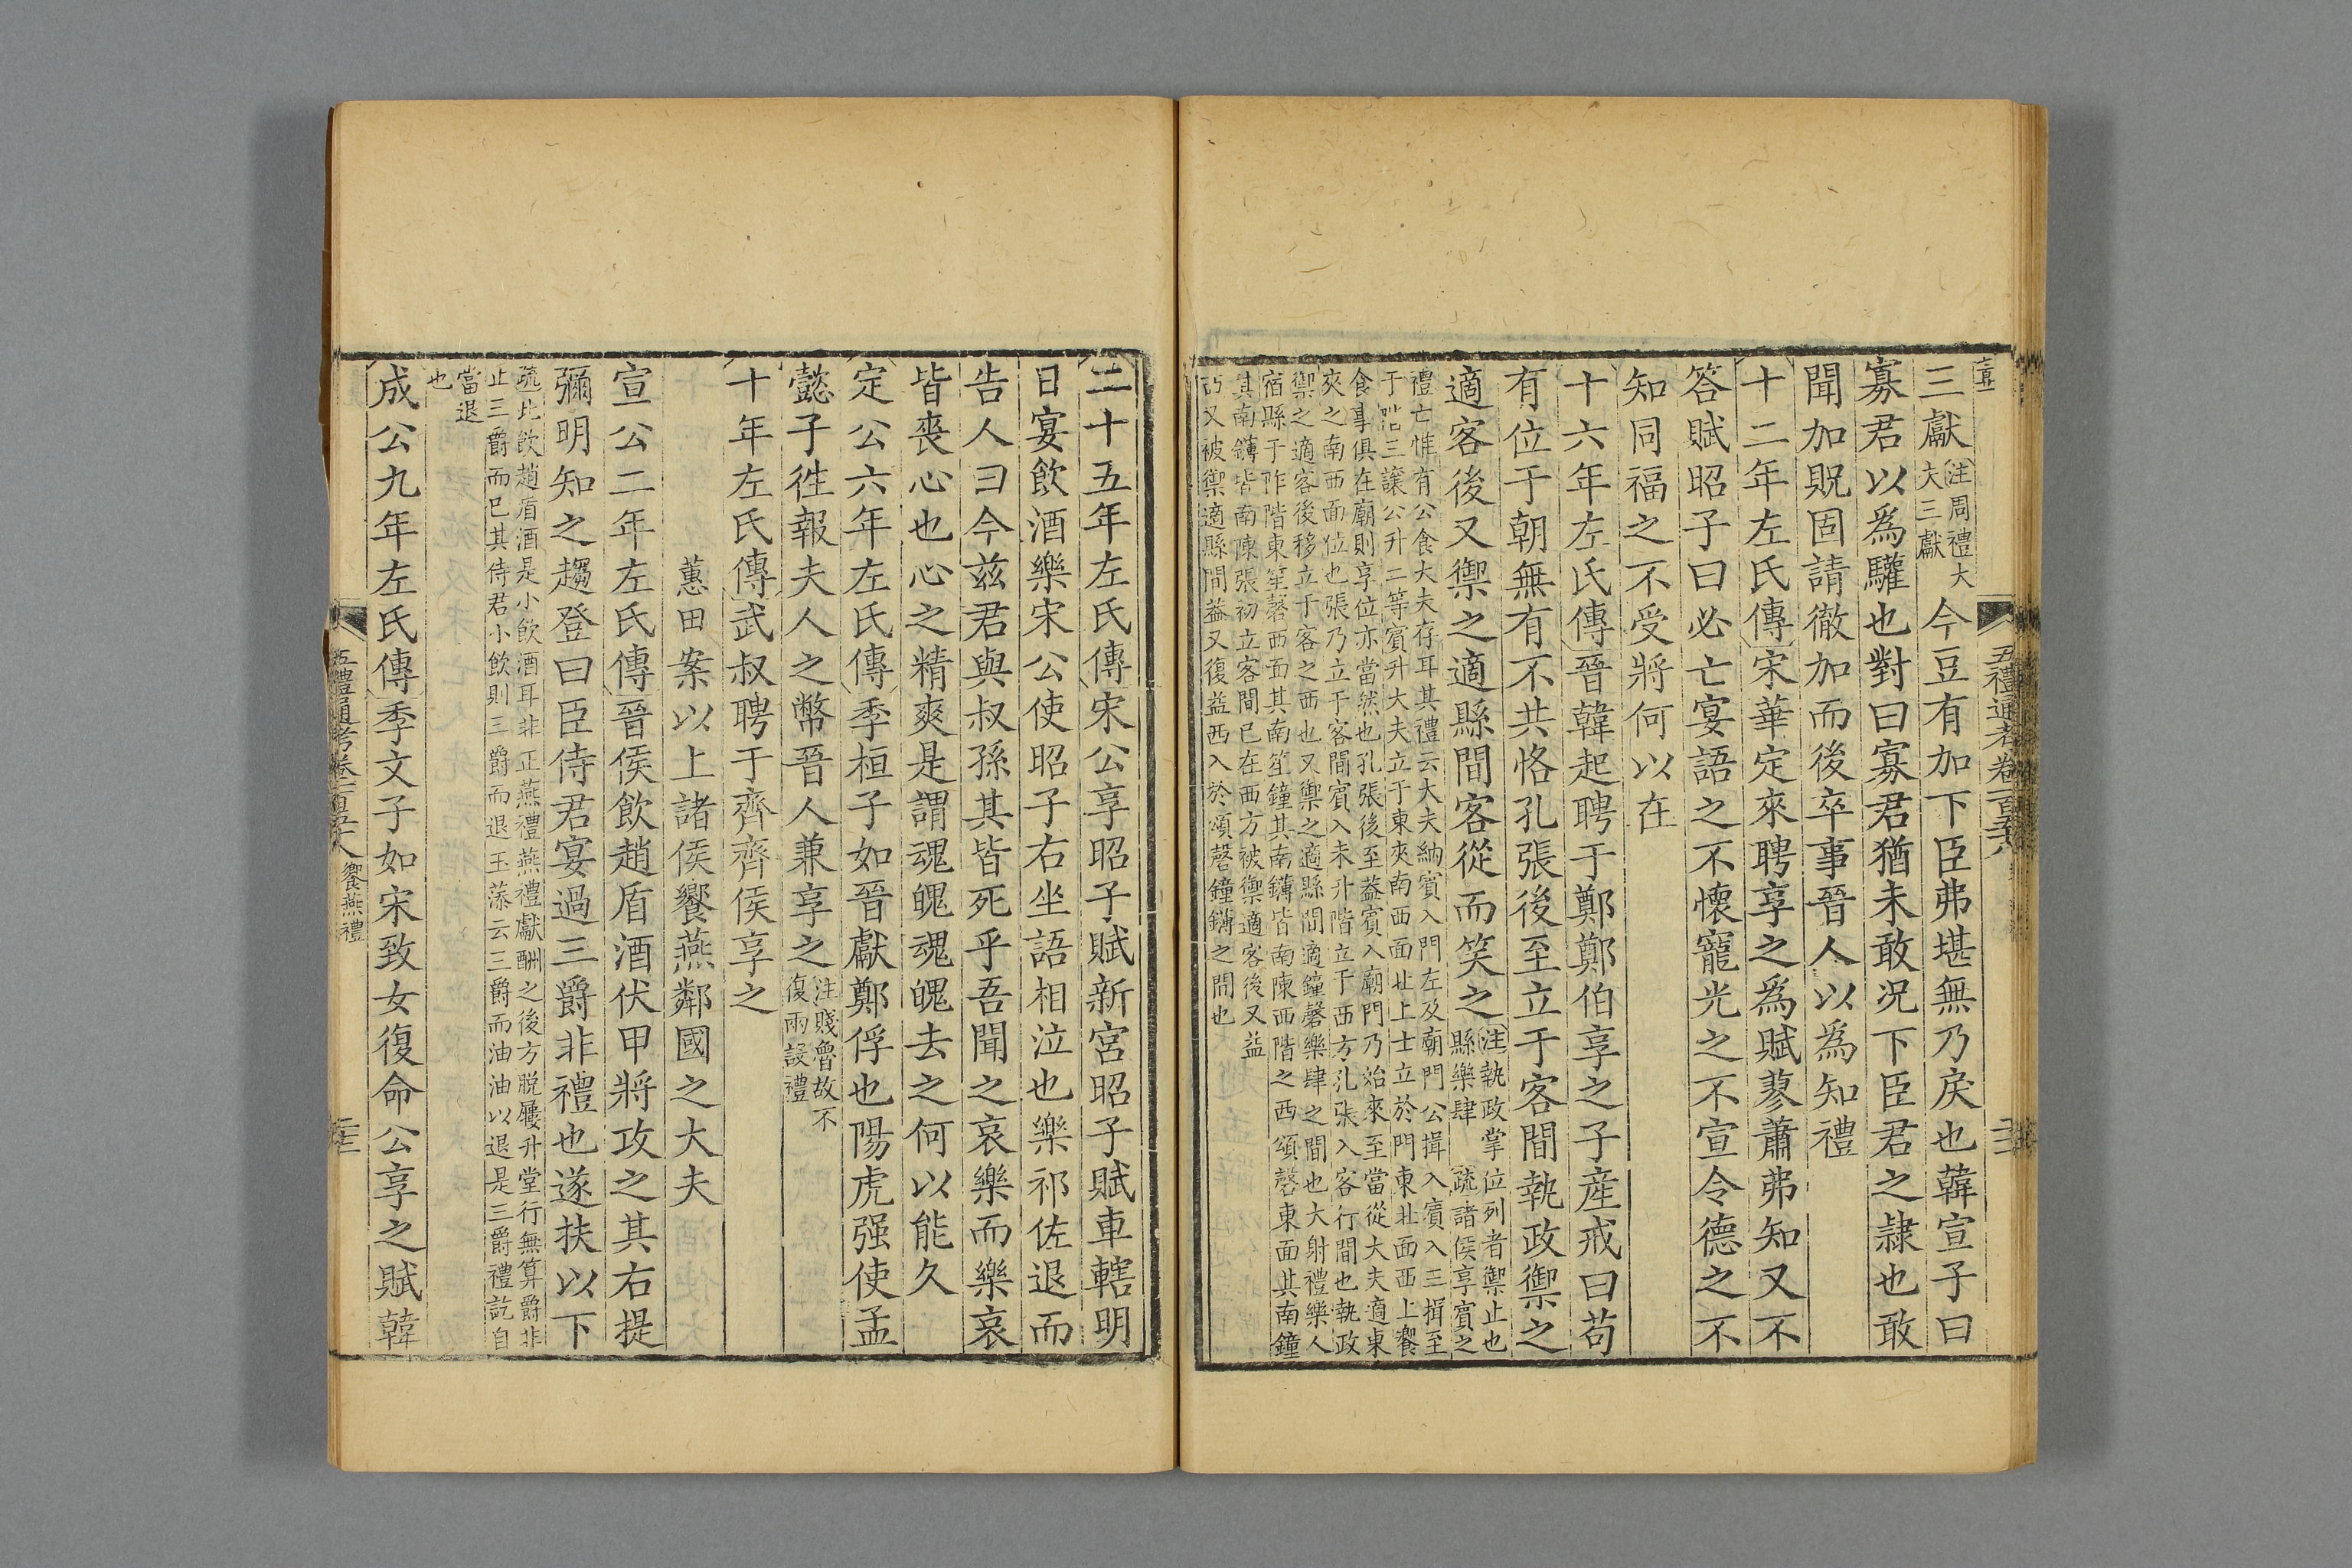 五禮通考卷一百五十八
三獻注周禮大夫三獻今豆有加下臣弗堪無乃戾也韓宣子曰
寡君以爲驩也對曰寡君猶未敢況下臣君之隸也敢
聞加貺固請徹加而後卒事晉人以爲知禮
十二年左氏傳宋華定來聘享之爲賦蓼蕭弗知又不
答賦昭子曰必亡宴語之不懷寵光之不宣令德之不
知同福之不受將何以在
十六年左氏傳晉韓起聘于鄭鄭伯享之子産戒曰苟
有位于朝無有不共恪孔張後至立于客間執政禦之
適客後又禦之適縣間客從而笑之注執政掌位列者禦止也縣樂肆
疏諸侯享賓之
禮亡惟有公食大夫存耳其禮云大夫納賓入門左及廟門公揖入賓入三揖至
于階三讓公升二等賓升大夫立于東夾南西面北上士立於門東北面西上饗
食事俱在廟則享位亦當然也孔張後至蓋賓入廟門乃始來至當從大夫適東
夾之南西面位也張乃立于客間賓入未升階立于西方孔張入客行間也執政
禦之適客後移立于客之西也又禦之適縣間適鐘磬樂肆之間也大射禮樂人
宿縣于阼階東笙磬西面其南笙鐘其南鑮皆南陳西階之西頌磬東面其南鐘
其南鑮皆南陳張初立客間已在西方被禦適客後又益
西又被禦適縣間益又復益西入於頌磬鐘鑮之間也
二十五年左氏傳宋公享昭子賦新宮昭子賦車轄明
日宴飲酒樂宋公使昭子右坐語相泣也樂祁佐退而
告人曰今兹君與叔孫其皆死乎吾聞之哀樂而樂哀
皆喪心也心之精爽是謂魂魄魂魄去之何以能久
定公六年左氏傳季桓子如晉獻鄭俘也陽虎强使孟
懿子徃報夫人之幣晉人兼享之注賤魯故不復兩設禮
十年左氏傳武叔聘于齊齊侯享之
蕙田案以上諸侯饗燕鄰國之大夫
宣公二年左氏傳晉侯飲趙盾酒伏甲將攻之其右提
彌明知之趨登曰臣侍君宴過三爵非禮也遂扶以下
疏此飲趙盾酒是小飲酒耳非正燕禮燕禮獻酬之後方脫屨升堂行無算爵非
止三爵而已其侍君小飲則三爵而退玉藻云三爵而油油以退是三爵禮訖自
當退
也
成公九年左氏傳季文子如宋致女復命公享之賦韓
五禮通考卷一百五十八 饗燕禮